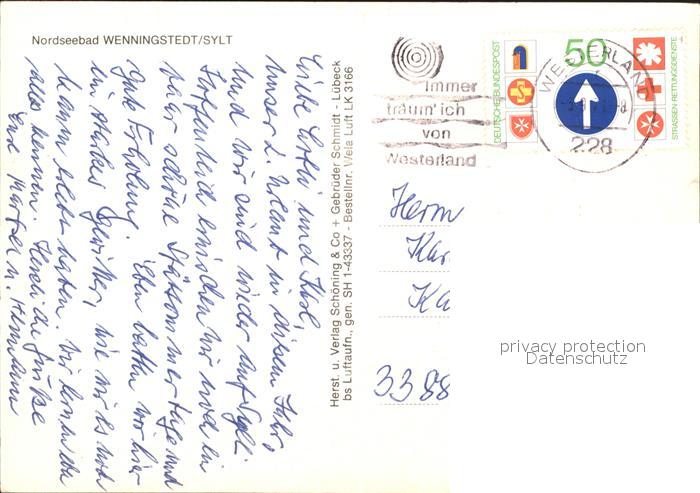 Nordseebad WENNINGSTEDT/SYLT
Liebe und Karl,
unser 2. Urlaub in diesem Jahr,
und wir sind wieder auf Sylt!
Hoffentlich erwischen wir noch ein
paar schöne Spätsommertage und
gute Erholung. Eben hatten wir hier
ein starkes Gewitter, wie wir es noch
kaum erlebt haben. Wir
alles kennen. Herzliche Grüße
Eure u. Hermann
Herst. u. Verlag Schöning & Co + Gebrüder Schmidt - Lübeck
bs Luftaufn., gen. SH 1-43337 - Bestellnr. Wela Luft LK 3166
Immer
träum' ich
von
Westerland
WESTERLAND
2.28
DEUTSCHE BUNDESPOST
50
STRASSEN-RETTUNGSDIENSTE
Herrn
Kar
Ka
3388
privacy protection
Datenschutz